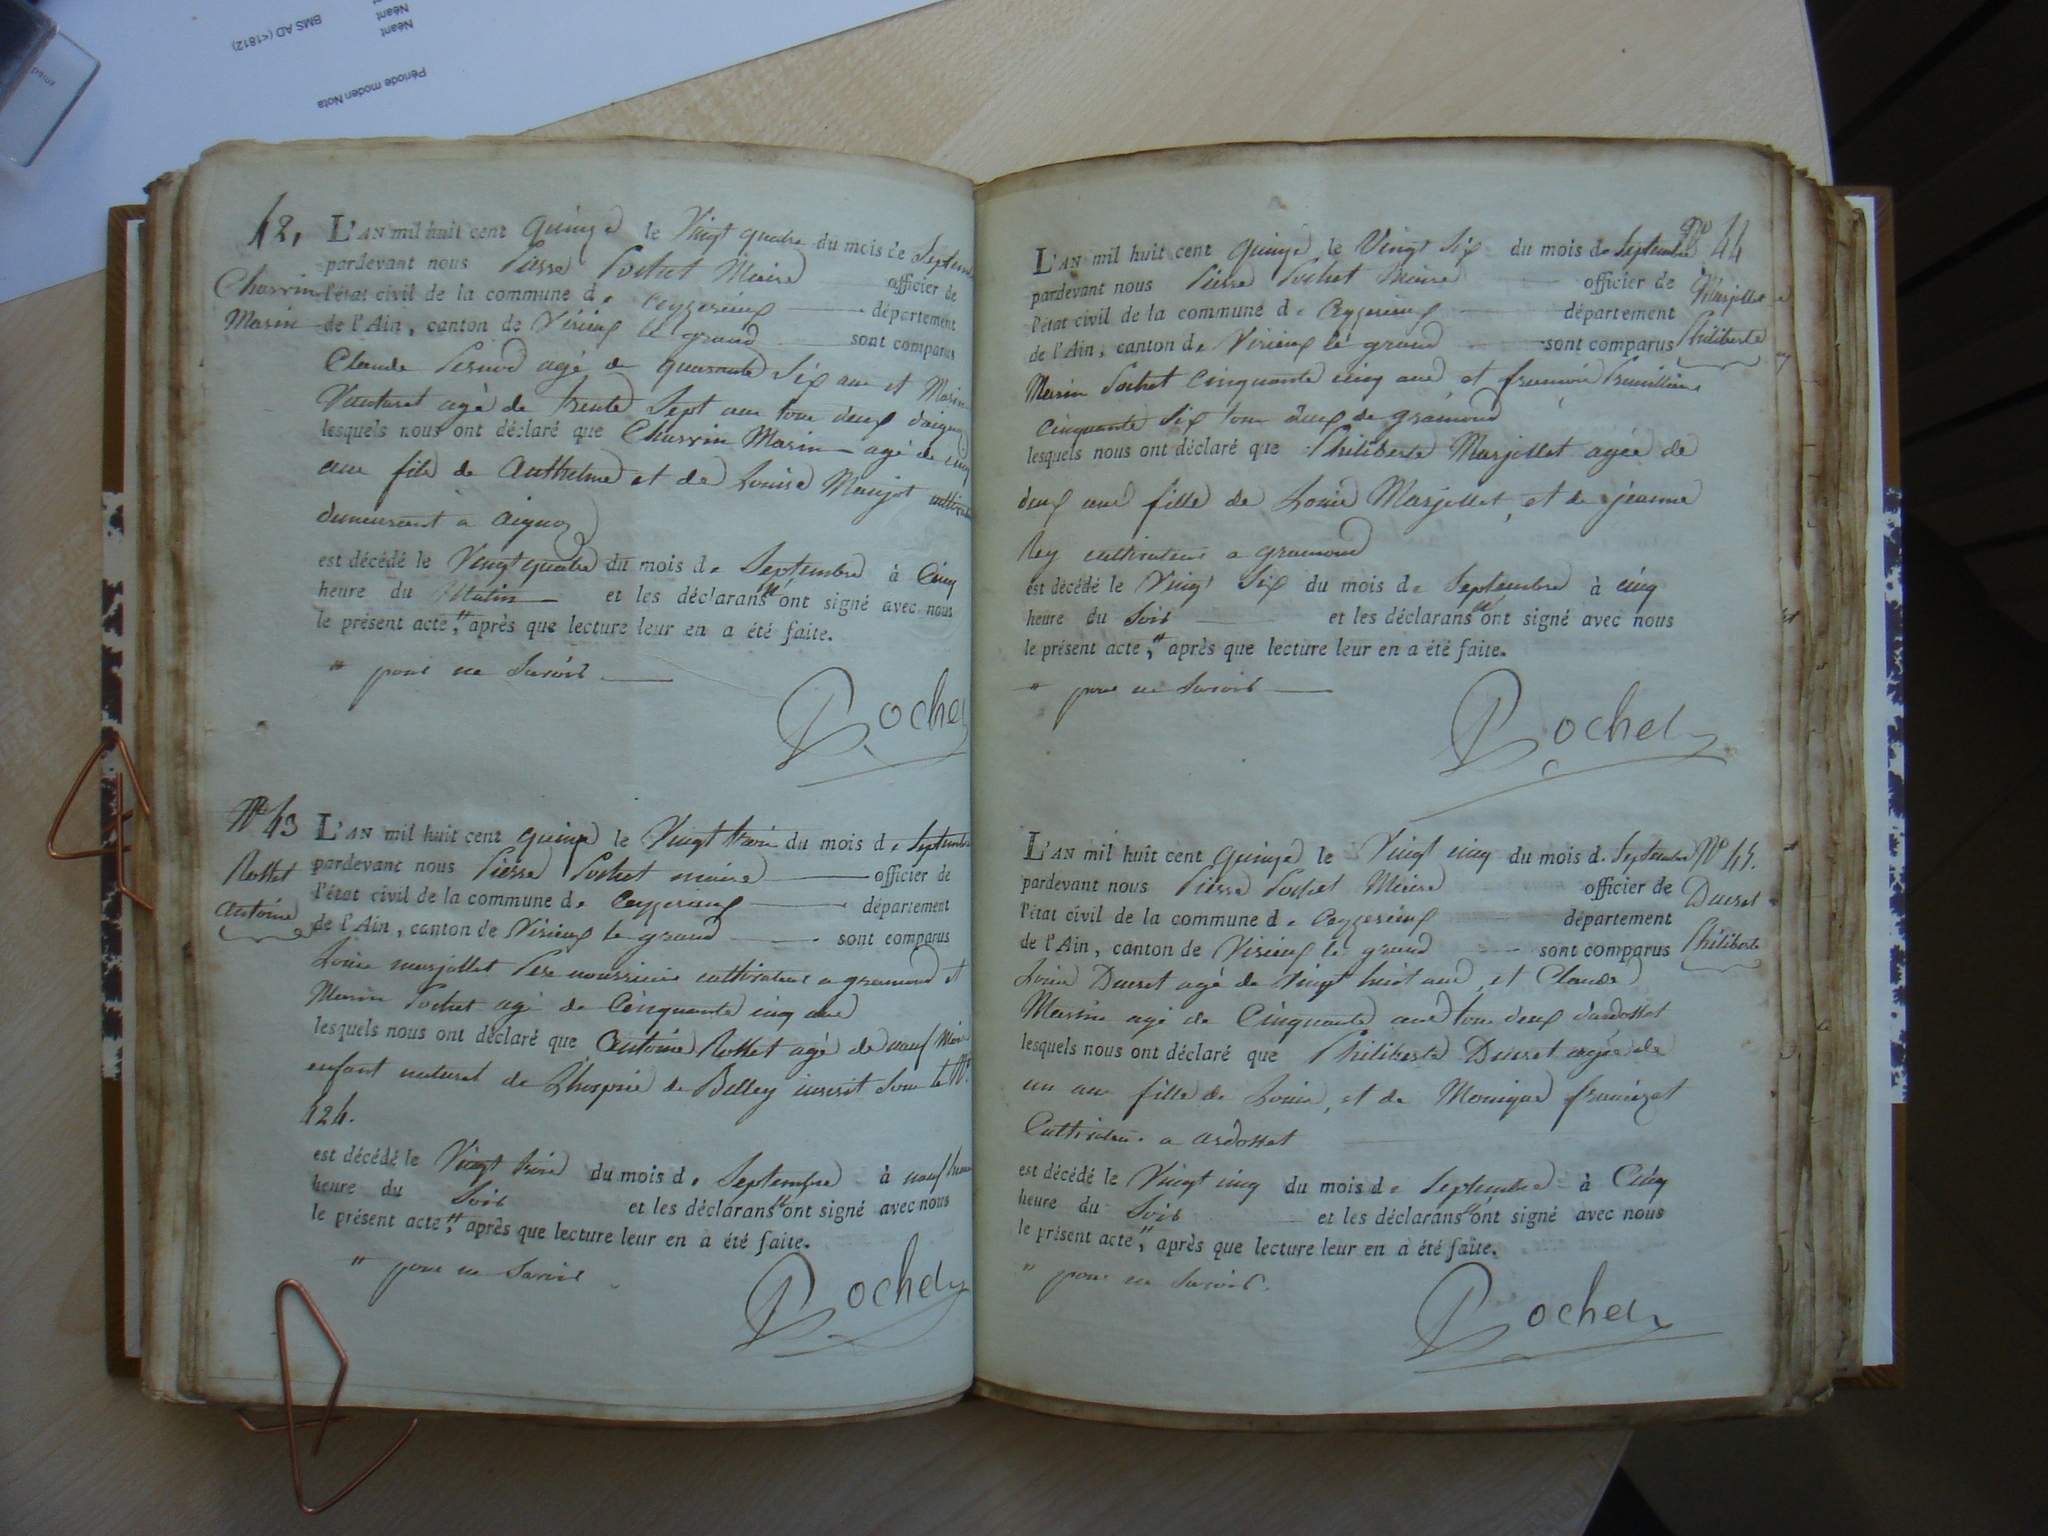 BMS AD (<1812)
Néant
Néant
Période moden Nota
42,
Charvin
Marin
L'AN mil huit cent quinze le Vingt quatre du mois de Septembre
pardevant nous Pierre Pochet Maire officier de
l'état civil de la commune de Ceyzerieux département
de l'Ain, canton de Virieux le grand sont comparus
Claude Pernod agé de quarante Six ans et Marin
agé de trente Sept ans tous deux
lesquels nous ont déclaré que Charvin Marin agé de cinq
ans fils de Anthelme et de Louise
demeurant a
est décédé le Vingt quatre du mois de Septembre à Cinq
heure du Matin et les déclarans " ont signé avec nous
le présent acte, " après que lecture leur en a été faite.
" pour ne Savoir
Pochet
No 43
Rosset
Antoine
L'AN mil huit cent quinze le Vingt trois du mois de Septembre
pardevant nous Pierre Pochet maire officier de
l'état civil de la commune de Ceyzerieux département
de l'Ain, canton de Virieux le grand sont comparus
Louis marjollet Pere nourricier cultivateur a gramond et
Marin Pochet agé de Cinquante cinq ans
lesquels nous ont déclaré que Antoine Rosset agé de neuf Mois
enfant naturel de L'hospice de Belley inscrit Sous le No
424.
est décédé le Vingt trois du mois de Septembre à neuf heure
heure du Soir et les déclarans " ont signé avec nous
le présent acte, " après que lecture leur en a été faite.
" pour ne Savoir
Pochet
No 44
Marjollet
Philiberte
L'AN mil huit cent quinze le Vingt Six du mois de Septembre
pardevant nous Pierre Pochet Maire officier de
l'état civil de la commune de Ceyzerieux département
de l'Ain, canton de Virieux le grand sont comparus
Marin Pochet Cinquante cinq ans et francois
Cinquante Six tous deux de gramond
lesquels nous ont déclaré que Philiberte Marjollet agée de
deux ans fille de Louis Marjollet, et de jeanne
Rey cultivateurs a gramond
est décédé le Vingt Six du mois de Septembre à cinq
heure du Soir et les déclarans " ont signé avec nous
le présent acte, " après que lecture leur en a été faite.
" pour ne Savoir
Pochet
No 45.
Ducret
Philiberte
L'AN mil huit cent quinze le Vingt cinq du mois de Septembre
pardevant nous Pierre Pochet Maire officier de
l'état civil de la commune de Ceyzerieux département
de l'Ain, canton de Virieux le grand sont comparus
Louis Ducret agé de Vingt huit ans, et Claude
Marin agé de Cinquante ans tous deux d'ardosset
lesquels nous ont déclaré que Philiberte Ducret agée de
un an fille de Louis, et de Monique
Cultivateurs a ardosset
est décédé le Vingt cinq du mois de Septembre à Cinq
heure du Soir et les déclarans " ont signé avec nous
le présent acte, " après que lecture leur en a été faite.
" pour ne Savoir.
Pochet